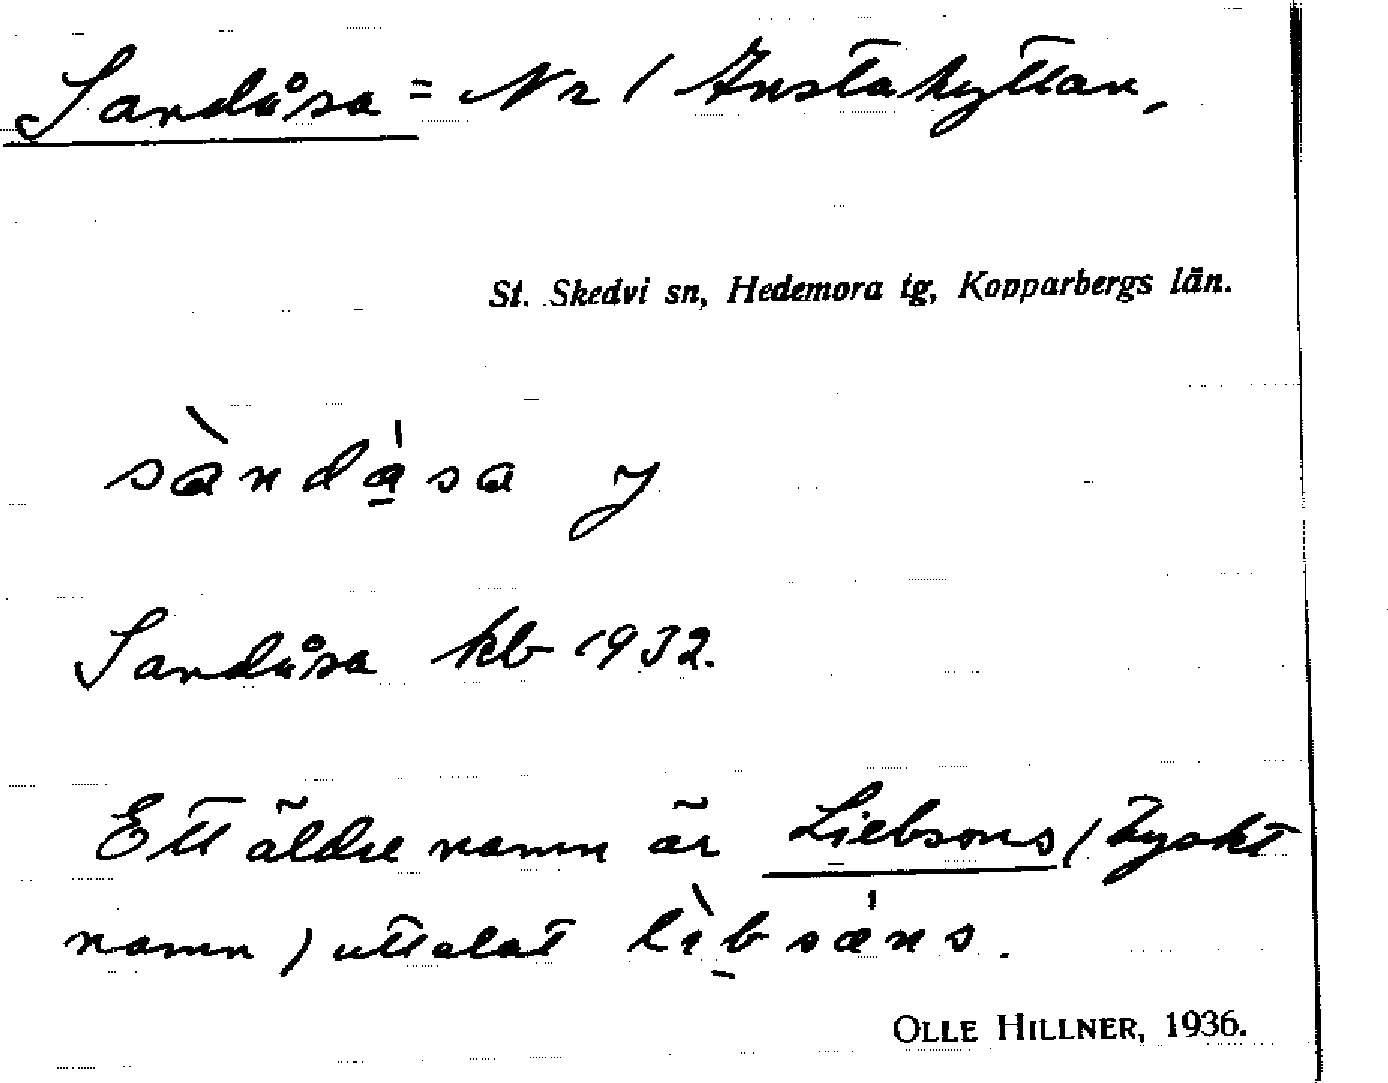 Sandåsa = Nr 1 Anstahyttan,
St. Skedvi sn, Hedemora tg, Kopparbergs län.
sàndåsa y
Sandåsa kb 1932.
Ett äldre namn är Liebsons (tyskt
namn) uttalat lìbsäns.
OLLE HILLNER, 1936.